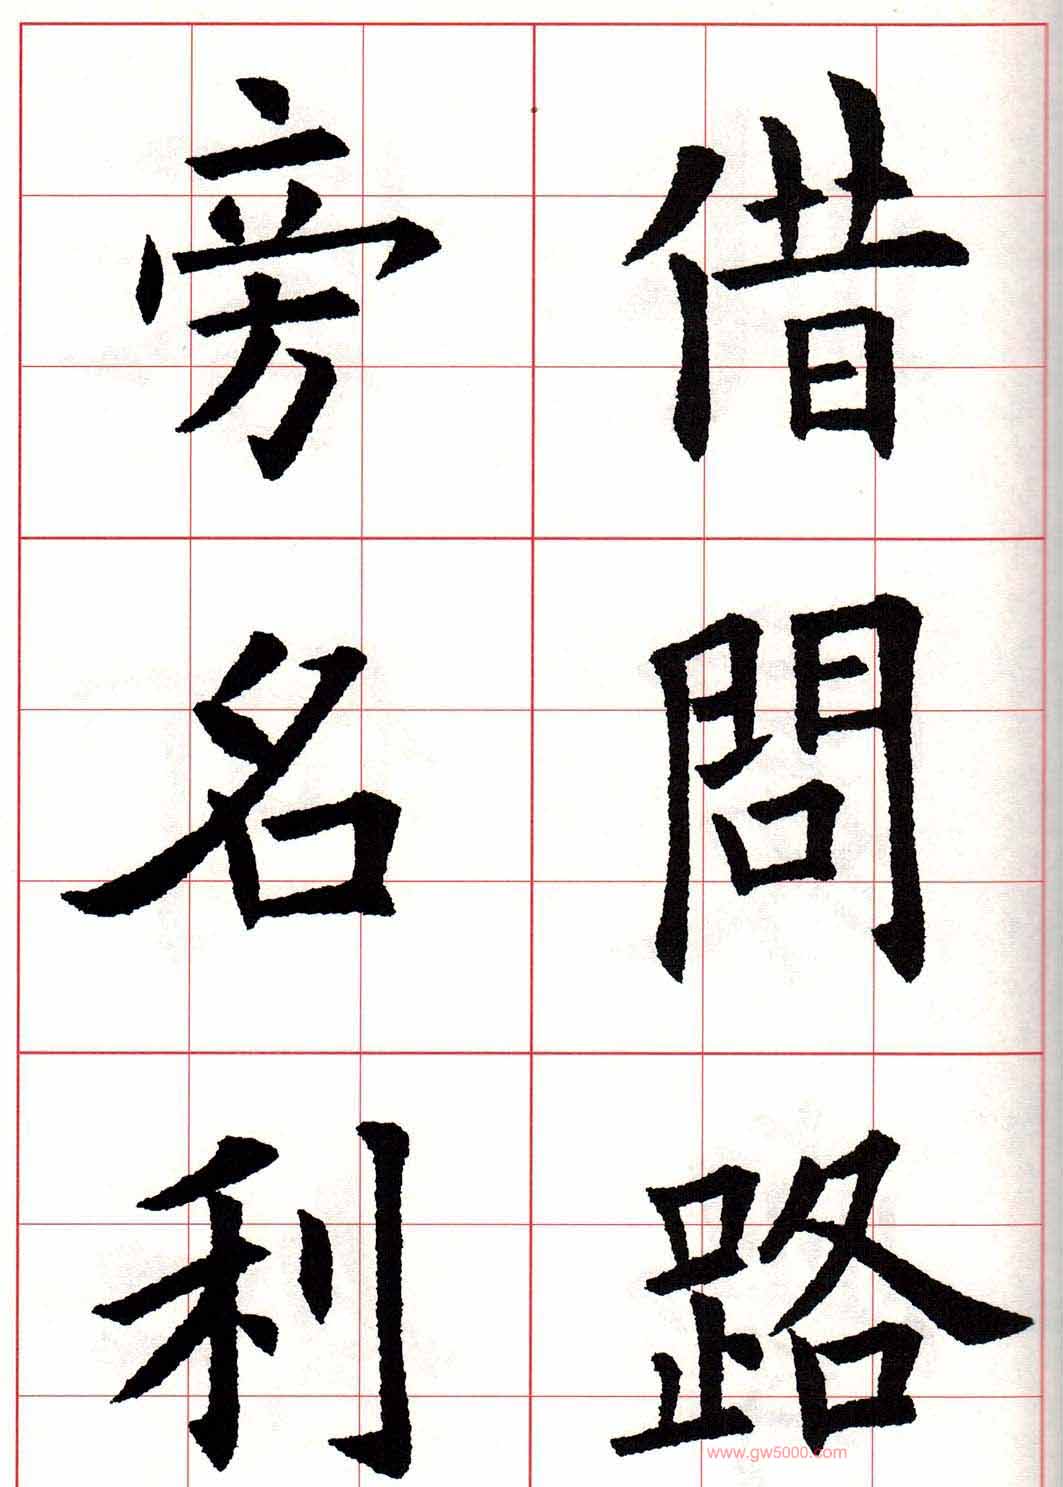 借問路
旁名利
www.gw5000.com